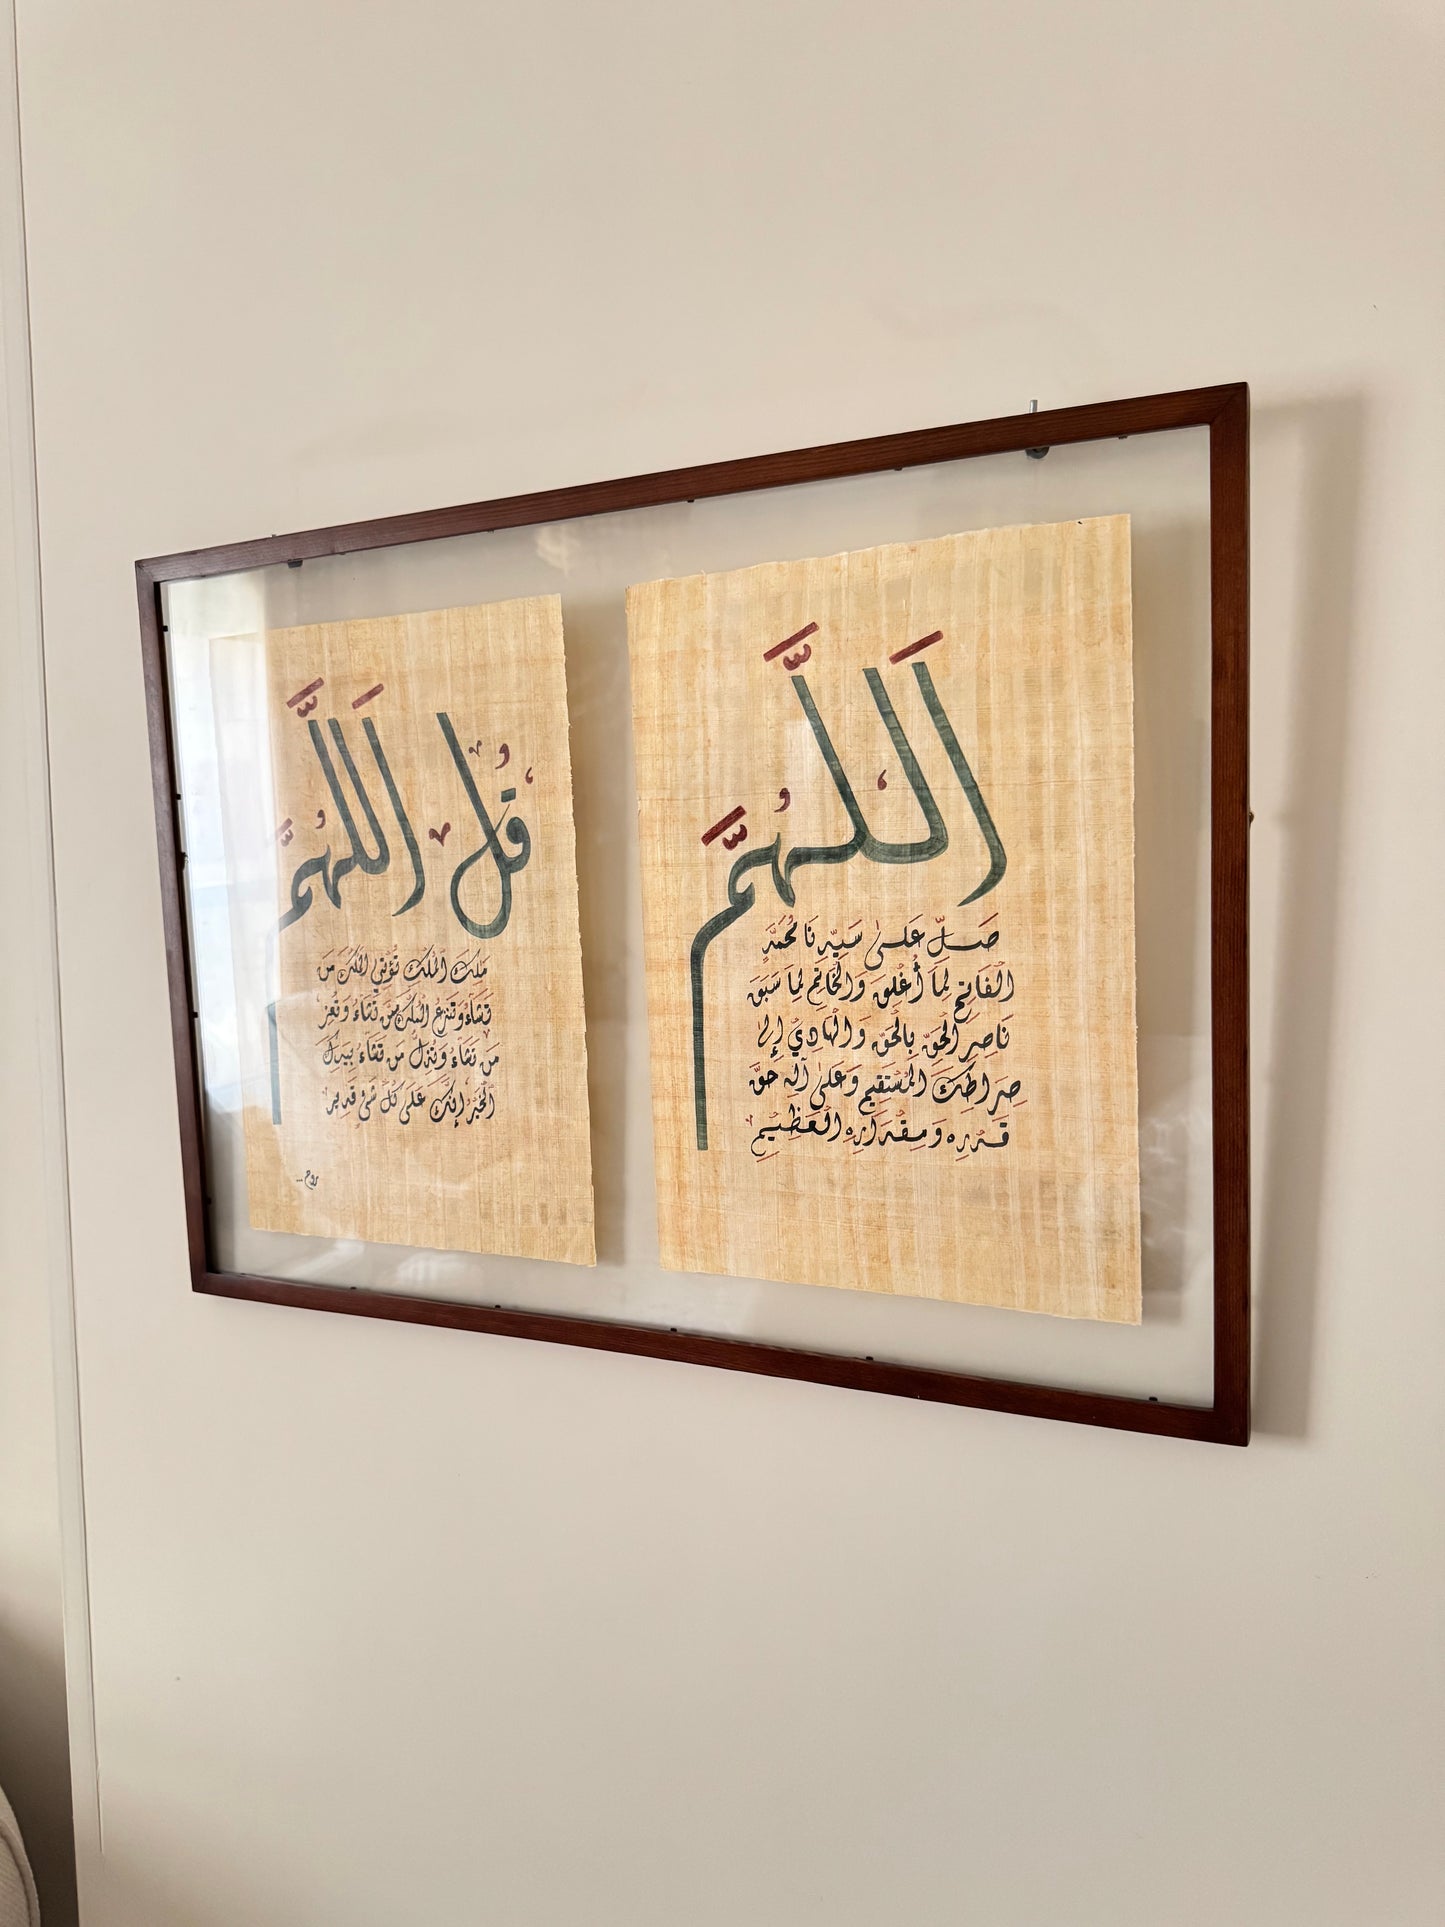 اَللّٰهُمَّ
صَلِّ عَلىٰ سَيِّدِنَا مُحَمَّدٍ
الْفَاتِحِ لِمَا أُغْلِقَ وَالْخَاتِمِ لِمَا سَبَقَ
نَاصِرِ الْحَقِّ بِالْحَقِّ وَالْهَادِيْ إِلىٰ
صِرَاطِكَ الْمُسْتَقِيمِ وَعَلىٰ آلِهِ حَقَّ
قَدْرِهِ وَمِقْدَارِهِ الْعَظِيْمِ
قُلِ اَللّٰهُمَّ
مَلِكَ الْمُلْكِ تُؤْتِي الْمُلْكَ مَنْ
تَشَاءُ وَتَنزِعُ الْمُلْكَ مِمَّنْ تَشَاءُ وَتُعِزُّ
مَنْ تَشَاءُ وَتُذِلُّ مَنْ تَشَاءُ بِيَدِكَ
الْخَيْرُ إِنَّكَ عَلَىٰ كُلِّ شَيْءٍ قَدِيرٌ